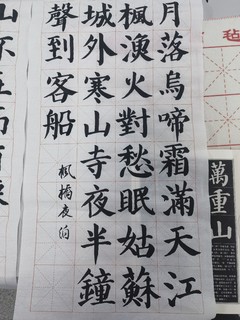 毡
萬重山
月落烏啼霜滿天江
楓漁火對愁眠姑蘇
城外寒山寺夜半鐘
聲到客船
楓橋夜泊